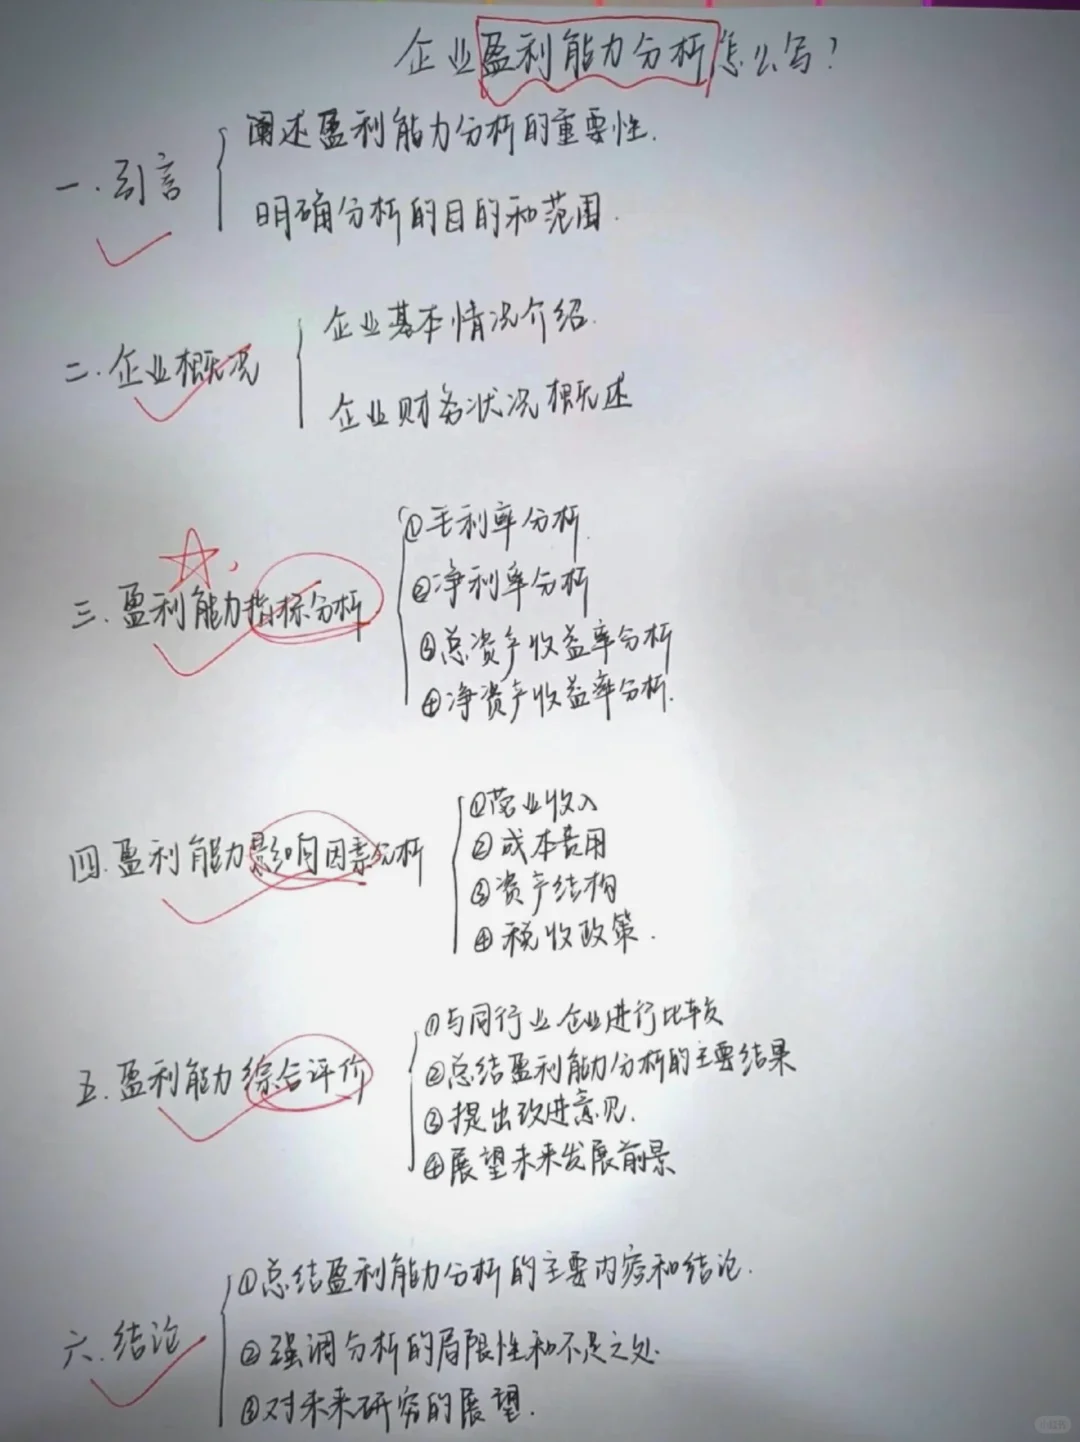 企业盈利能力分析怎么写?
一.引言
阐述盈利能力分析的重要性.
明确分析的目的和范围.
二.企业概况
企业基本情况介绍.
企业财务状况概述
三.盈利能力指标分析
①毛利率分析.
②净利率分析
③总资产收益率分析
④净资产收益率分析.
四.盈利能力影响因素分析
①营业收入
②成本费用
③资产结构
④税收政策.
五.盈利能力综合评价
①与同行业企业进行比较
②总结盈利能力分析的主要结果
③提出改进意见.
④展望未来发展前景
六.结论
①总结盈利能力分析的主要内容和结论.
②强调分析的局限性和不足之处.
③对未来研究的展望.
小红书